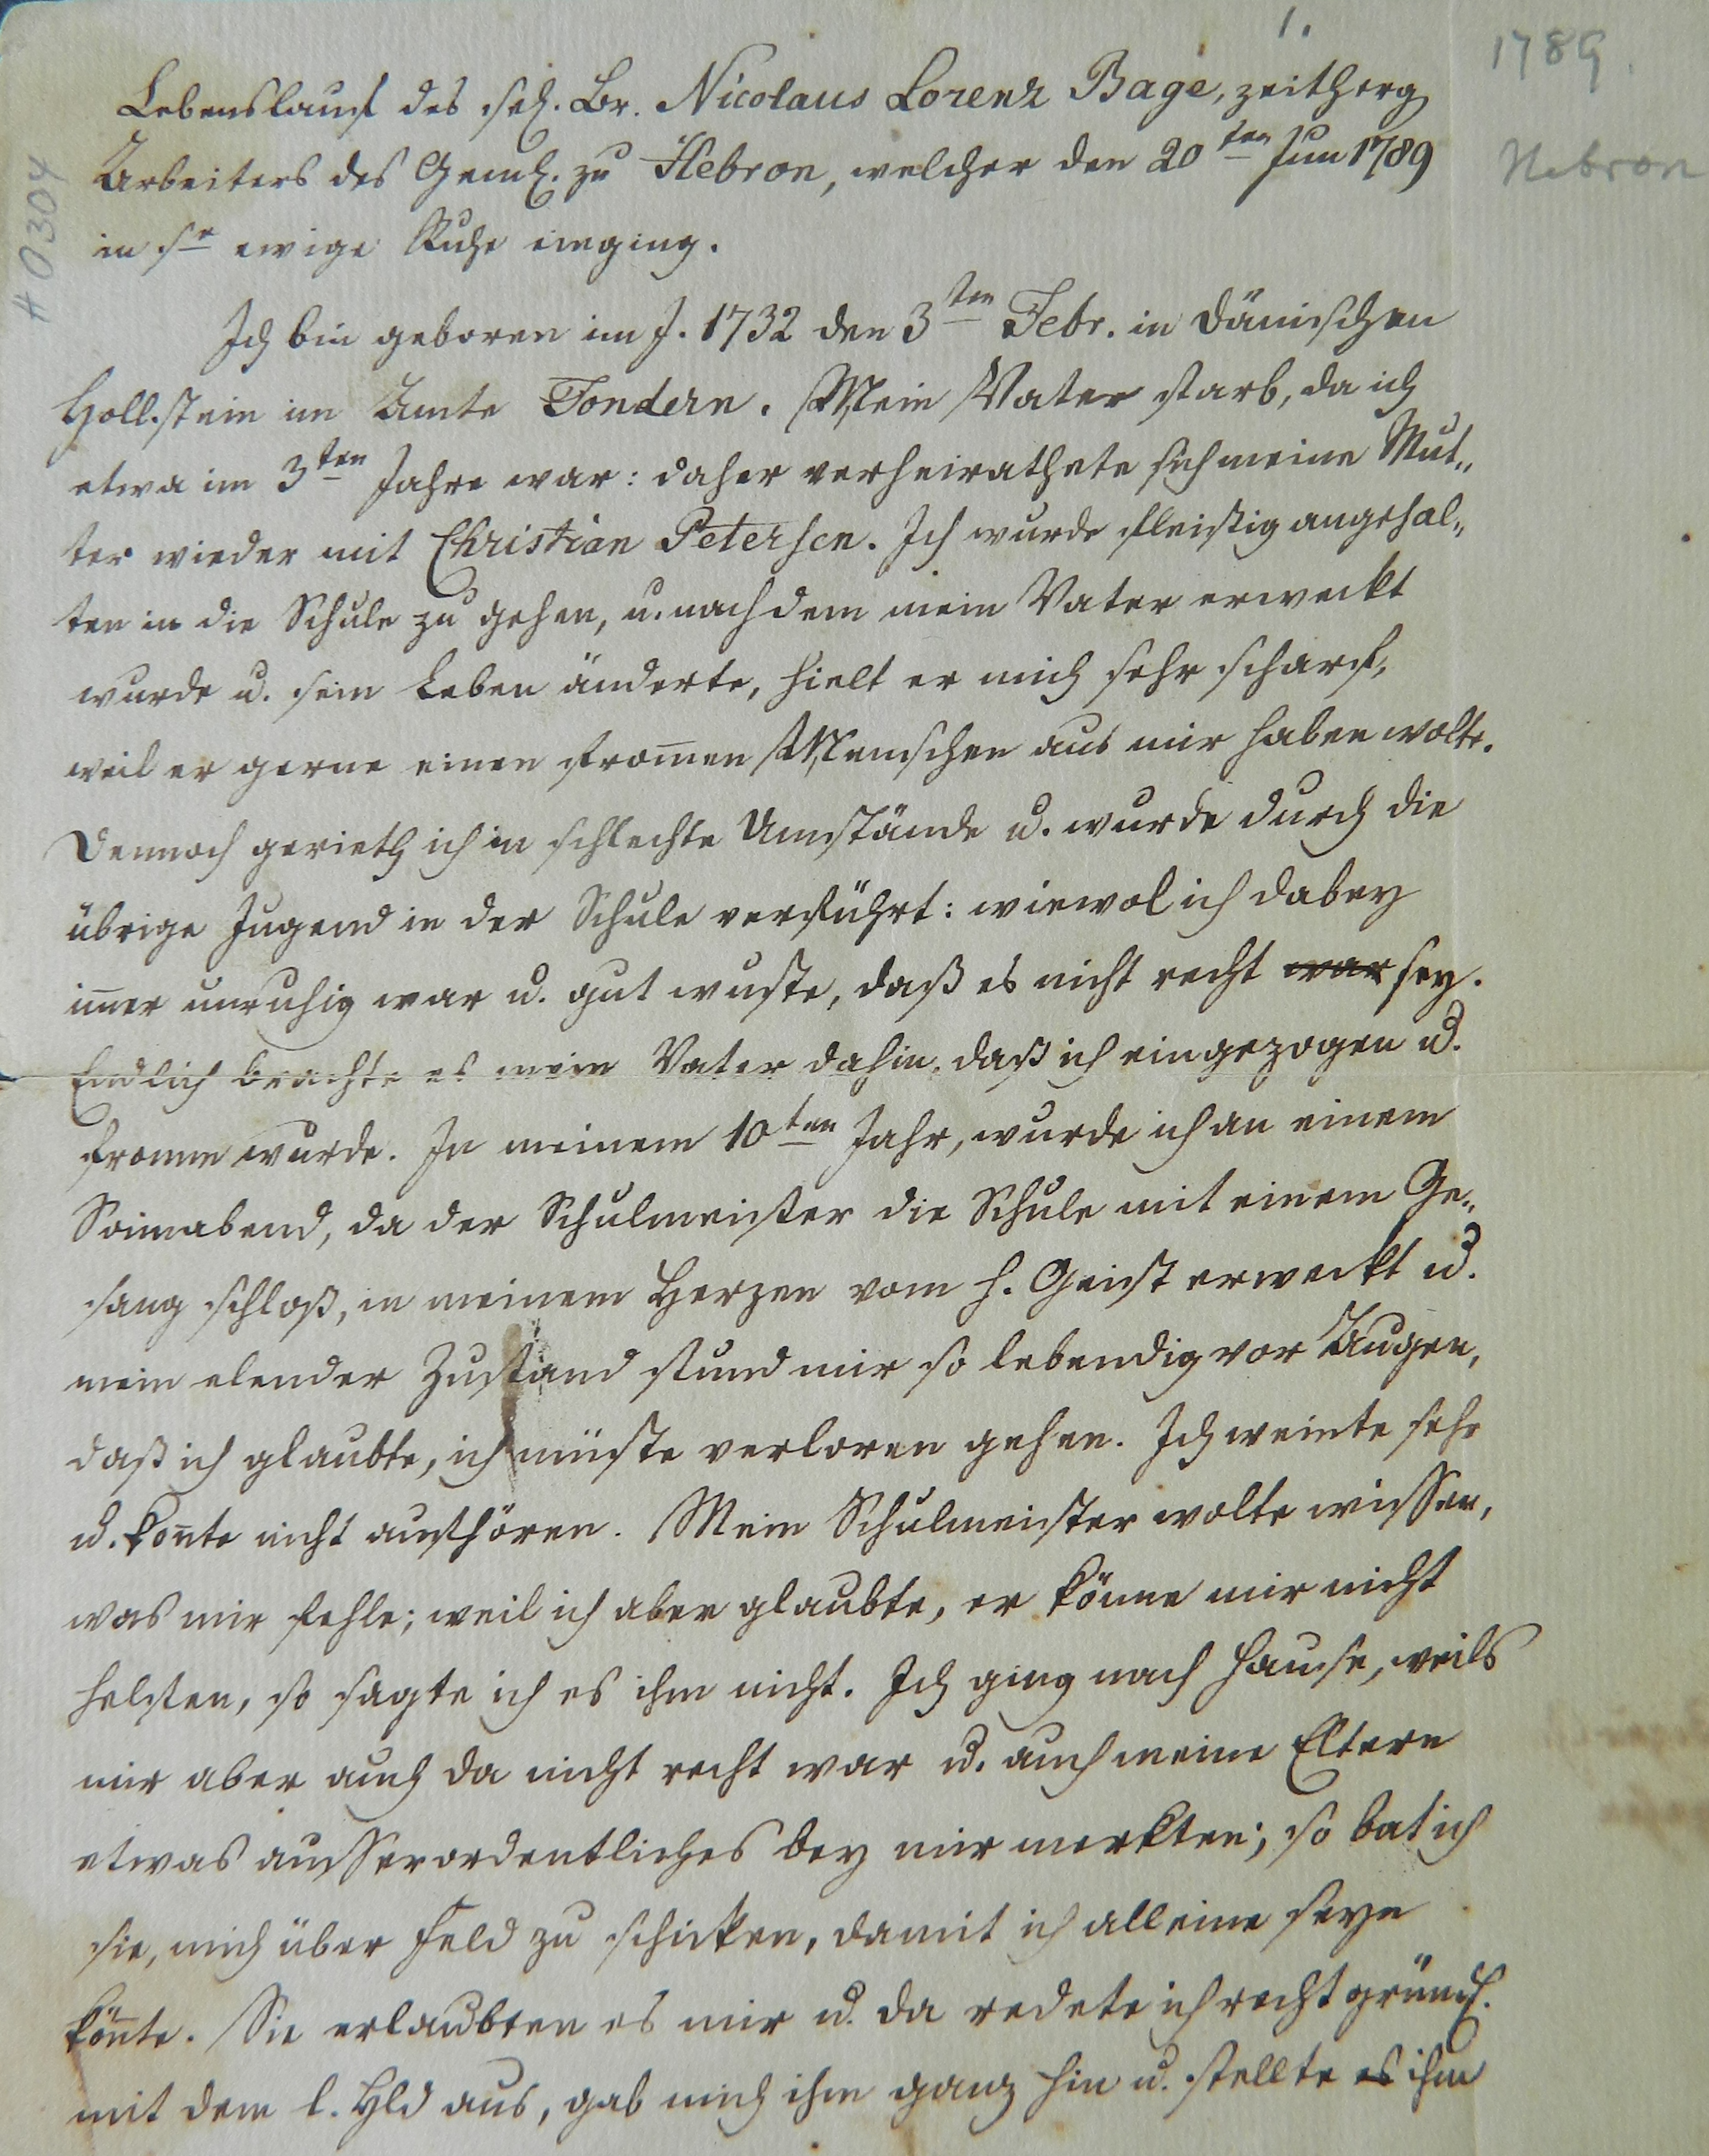 1.
1789.
Lebenslauf des sel. Br. Nicolaus Lorenz Bage, zeitherg
Arbeiters des Gemh. zu Hebron, welcher den 20ten Jun 1789
Hebron
in se ewige Ruhe einging.
# 0304
Ich bin geboren im J. 1732 den 3ten Febr. in Dänischen
Hollstein im Amte Tondern. Mein Vater starb, da ich
etwa im 3ten Jahre war: daher verheirathete sich meine Mut„
ter wieder mit Christian Petersen. Ich wurde fleißig angehal„
ten in die Schule zu gehen, u. nachdem mein Vater erweckt
wurde u. sein Leben änderte, hielt er mich sehr scharf,
weil er gerne einen from̅en Menschen aus mir haben wolte.
Dennoch gerieth ich in schlechte Umstände u. wurde durch die
übrige Jugend in der Schule verführt: wiewol ich dabey
im̅er unruhig war u. gut wuste, daß es nicht recht war sey.
Endlich brachte es mein Vater dahin, daß ich eingezogen u.
fromm wurde. In meinem 10ten Jahr, wurde ich an einem
Sonnabend, da der Schulmeister die Schule mit einem Ge„
sang schloß, in meinem Herzen vom h. Geist erweckt u.
mein elender Zustand stund mir so lebendig vor Augen,
daß ich glaubte, ich müste verloren gehen. Ich weinte sehr
u. kon̅te nicht aufhören. Mein Schulmeister wolte wissen,
was mir fehle; weil ich aber glaubte, er könne mir nicht
helfen, so sagte ich es ihm nicht. Ich ging nach Hause, weils
mir aber auch da nicht recht war u. auch meine Eltern
etwas ausserordentliches bey mir merkten; so bat ich
sie, mich über Feld zu schicken, damit ich alleine seyn
kön̅te. Sie erlaubten es mir u. da redete ich recht gründl.
mit dem l. Hld aus, gab mich ihm ganz hin u. stellte es ihm